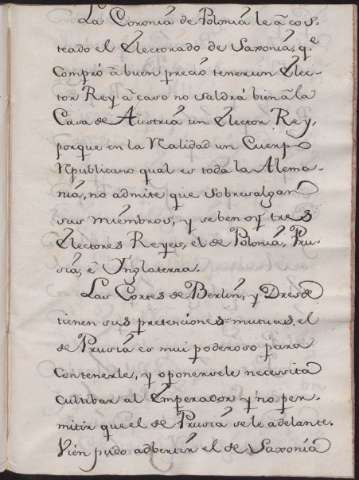 La Coronia de Polonia le à cos-
teado el Electorado de Saxonia, q.e
Compró à buen precio tener un Elec-
tor Rey à caso no saldrá bien à la
Casa de Austria un Elector Rey,
porque en la Realidad un Cuerpo
Republicano qual es toda la Alema-
nia, no admite que sobresalgan
sus miembros, y se ben oy tres
Electores Reyes, el de Polonia, Pru-
sia, è Inglaterra.
Las Cortes de Berlin, y Dresde
tienen sus pretenciones mutuas, el
de Prusia es mui poderoso para
contenerle, y oponersele necesita
cultibar al Emperador y no per-
mitir que el de Prusia se le adelante.
Vien pudo adbertir el de Saxonia